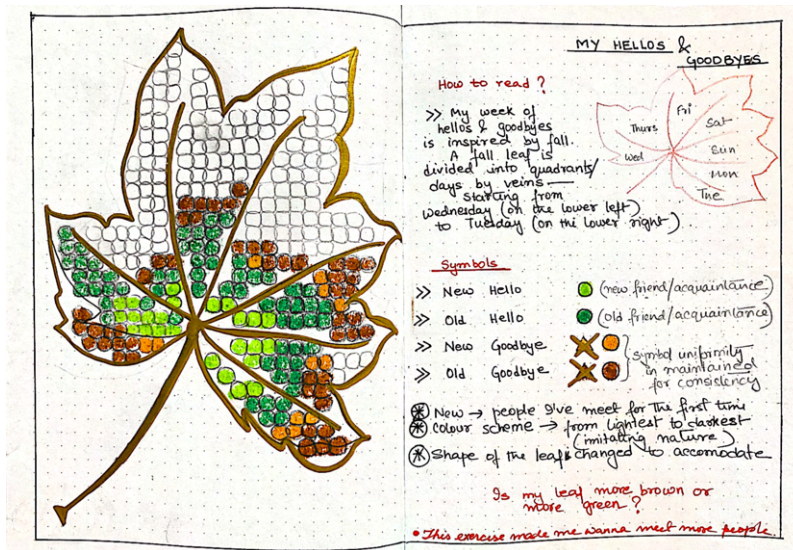 MY HELLO'S &
GOODBYES
How to read?
>> My week of
hellos & goodbyes
is inspired by fall.
A fall leaf is
divided into quadrants/
days by veins —
starting from
Wednesday (on the lower left)
to Tuesday (on the lower right)
Wed
Thurs
Fri
Sat
Sun
Mon
Tue
Symbols
>> New Hello (new friend/acquaintance)
>> Old Hello (old friend/acquaintance)
>> New Goodbye
>> Old Goodbye
symbol uniformity
is maintained
for consistency
New → people I've meet for the first time
Colour scheme → from lightest to darkest
(imitating nature)
Shape of the leaf changed to accomodate
Is my leaf more brown or
more green?
• This exercise made me wanna meet more people.